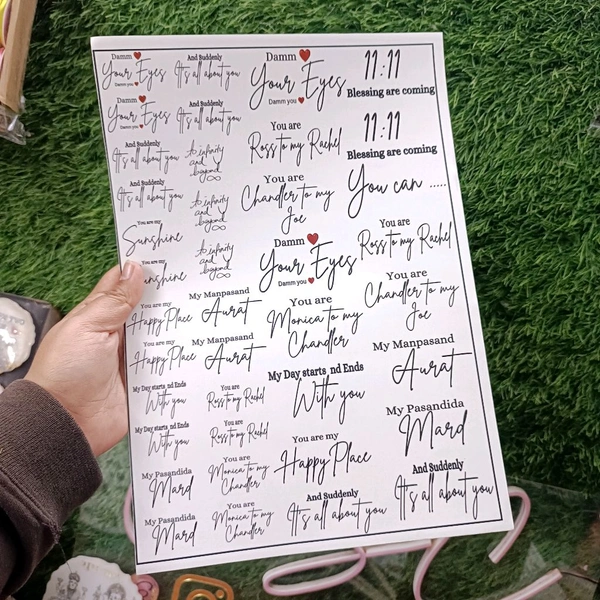 Damm ❤
Your Eyes
Damm you ❤
Damm ❤
Your Eyes
Damm you ❤
And Suddenly
It's all about you
And Suddenly
It's all about you
You are my
Sunshine
You are my
Sunshine
You are my
Happy Place
You are my
Happy Place
My Day starts nd Ends
With you
My Day starts nd Ends
With you
My Pasandida
Mard
My Pasandida
Mard
And Suddenly
It's all about you
And Suddenly
It's all about you
To infinity
and
beyond
∞
To infinity
and
beyond
∞
To infinity
and
beyond
∞
My Manpasand
Aurat
My Manpasand
Aurat
You are
Ross to my Rachel
You are
Ross to my Rachel
You are
Monica to my
Chandler
You are
Monica to my
Chandler
Damm ❤
Your Eyes
Damm you ❤
You are
Ross to my Rachel
You are
Chandler to my
Joe
Damm ❤
Your Eyes
Damm you ❤
You are
Monica to my
Chandler
My Day starts nd Ends
With you
You are my
Happy Place
And Suddenly
It's all about you
11:11
Blessing are coming
11:11
Blessing are coming
You can .....
You are
Ross to my Rachel
You are
Chandler to my
Joe
My Manpasand
Aurat
My Pasandida
Mard
And Suddenly
It's all about you